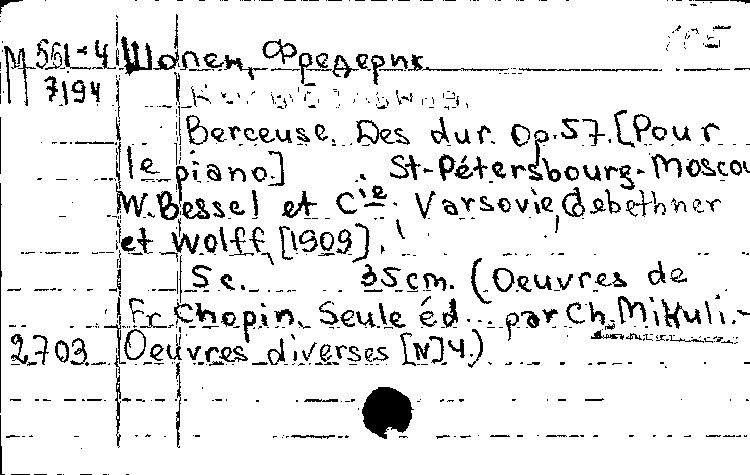 М 561-4 Шопен, Фредерик.
7194
Berceuse. Des dur. Op.57. [Pour
le piano.] . St-Pétersbourg-Moscou
W. Bessel et Cie. Varsovie, Gebethner
et Wolff, [1909].
5 c. 35 cm. (Oeuvres de
Fr. Chopin. Seule éd... par Ch. Mikuli.-
2703 Oeuvres diverses [N] 4.)